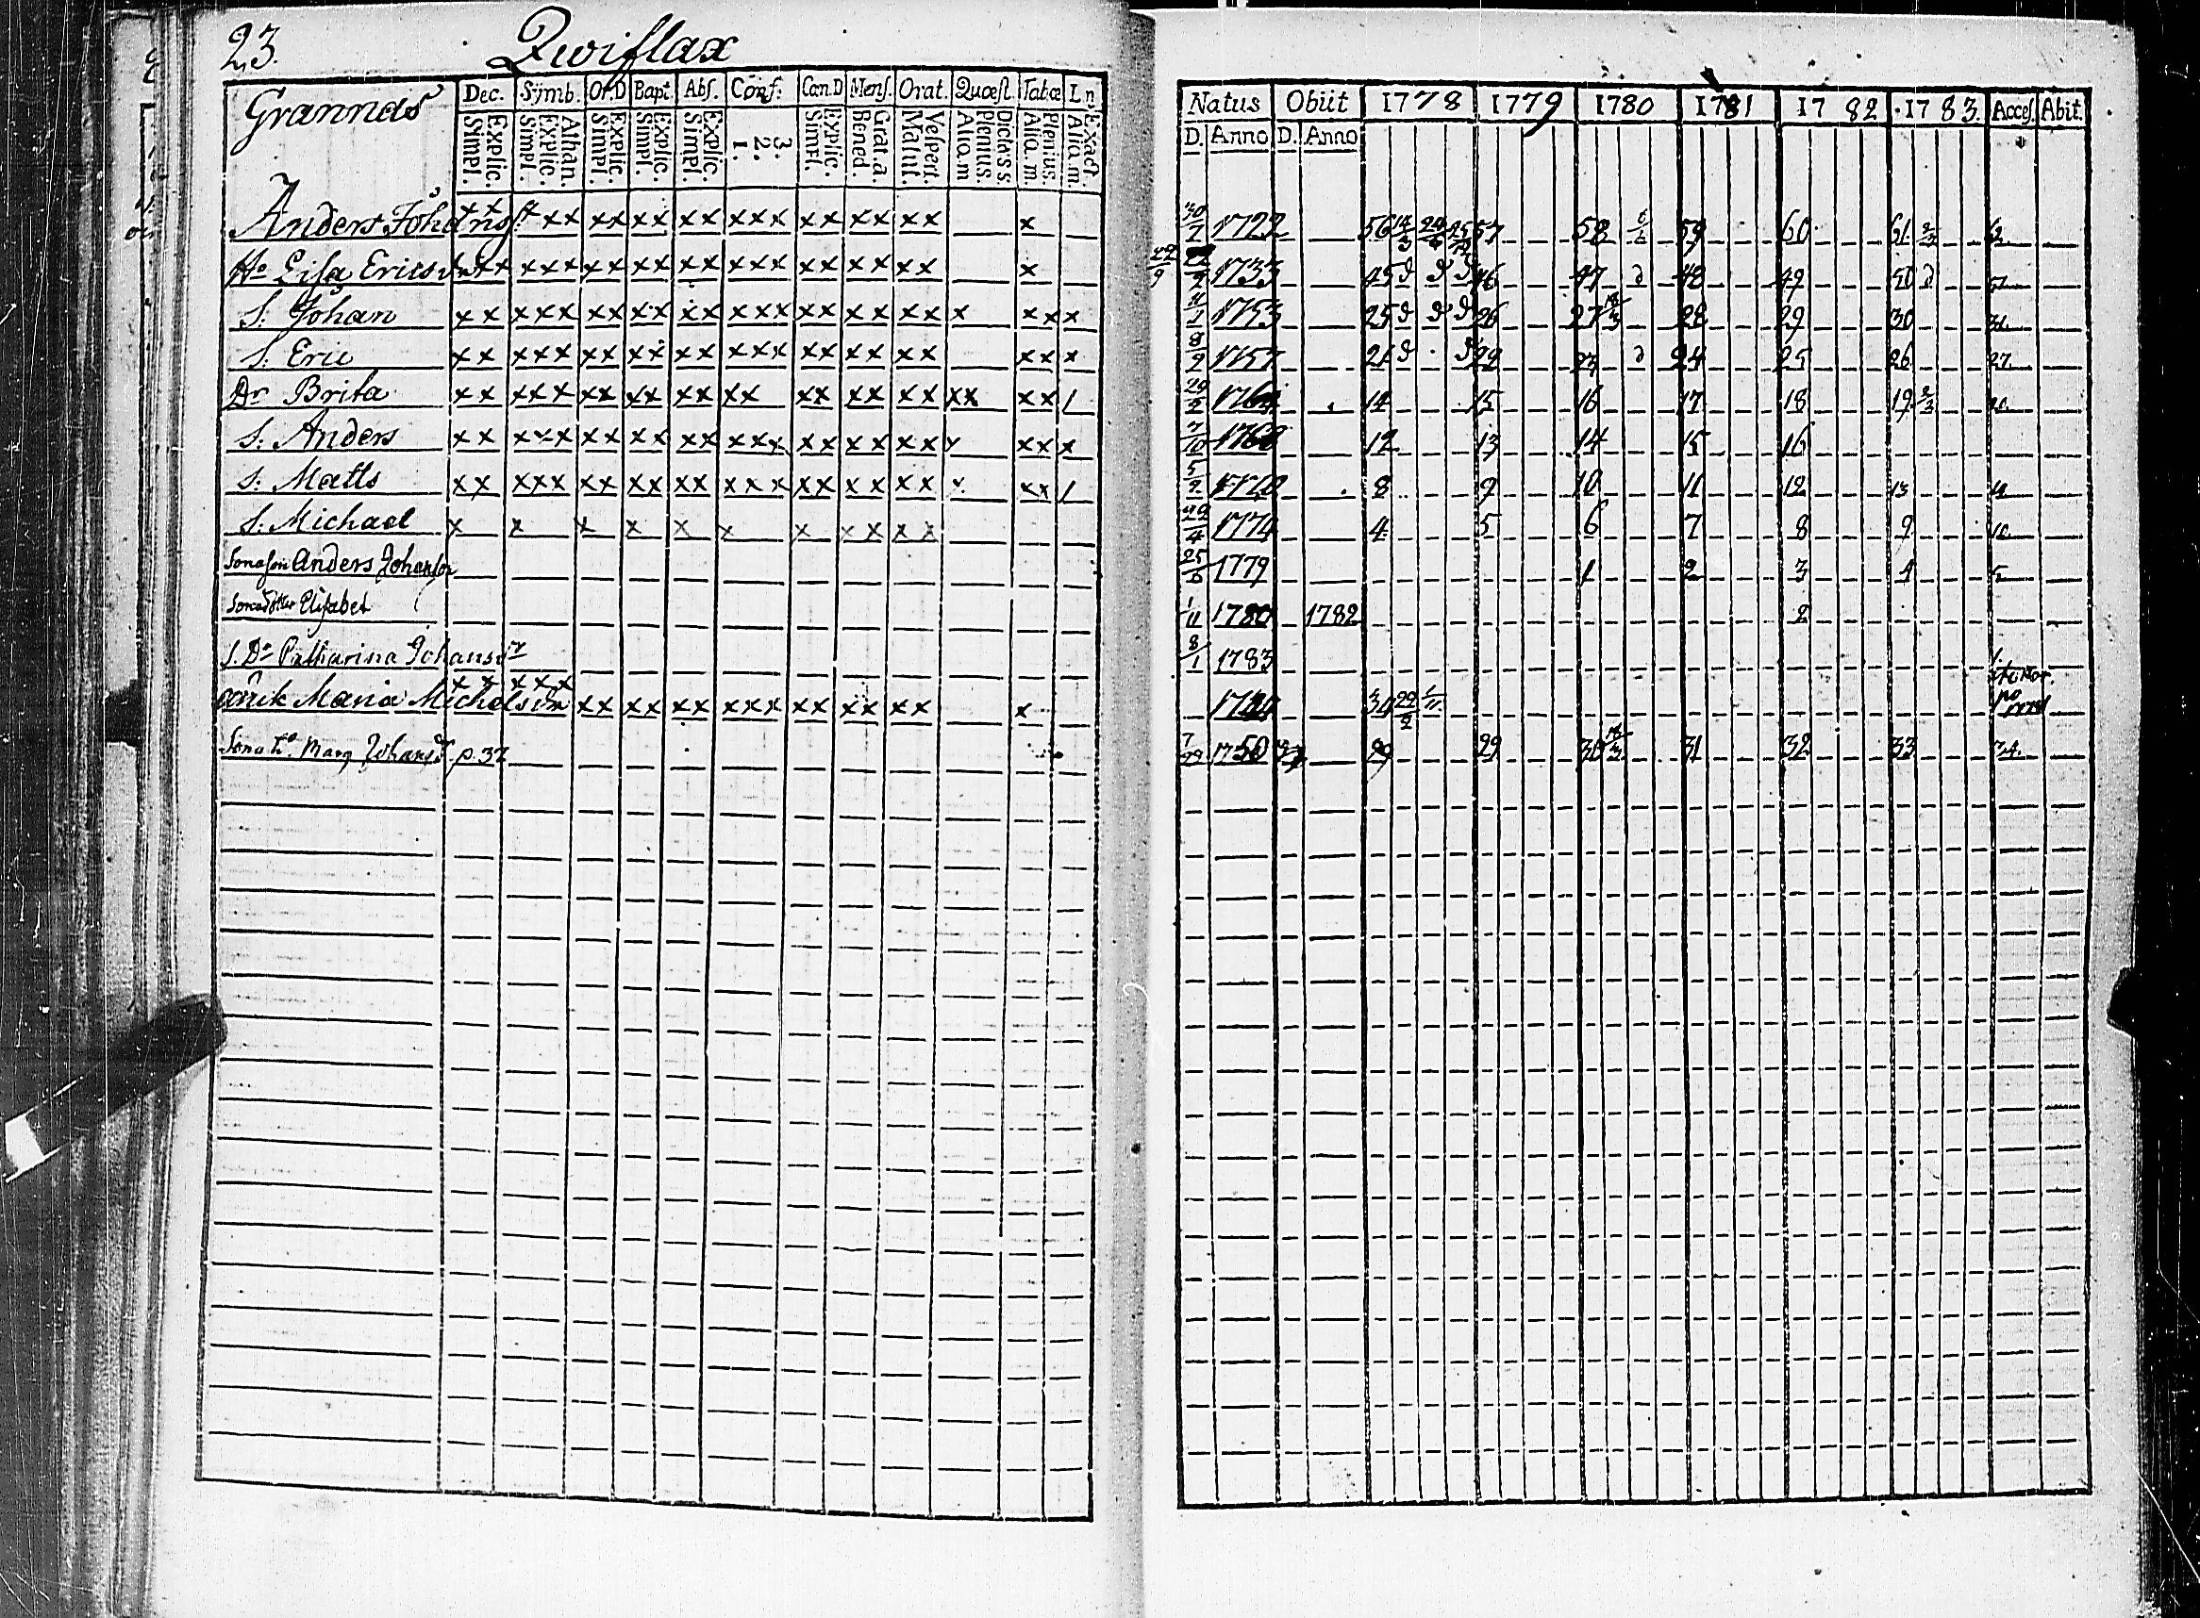 23. Qwiflax
Grannas Dec. Symb. Or.D Bapt. Abs. Conf. Cœn.D Mens. Orat. Quæst. Tabæ L.n.
Simpl. Explic. Simpl. Explic. Athan. Simpl. Explic. Simpl. Explic. Simpl. Explic. 1. 2. 3. Simpl. Explic. Bened. Grat.a. Matut. Vespert. Aliq.m Plenius. Dicta s.s. Aliq.m. Plenius. Aliq.m. Exact.
Natus Obiit 1778 1779 1780 1781 1782 1783. Acces. Abit.
D. Anno D. Anno
Anders Johans x x x x x x x x x x x x x x x x x x x x x
30/7 1722 56 57 58 59 60 61 2/3
Ho Lisa Ericsdr x x x x x x x x x x x x x x x x x x x x x
1733 45 d d d 46 47 d 48 49 50 d
S: Johan x x x x x x x x x x x x x x x x x x x x x x x x x
1753 25 d d d 26 27 28 29 30 31.
S. Eric x x x x x x x x x x x x x x x x x x x x x x x
8/9 1757 21 d d 22 23 d 24 25 26 27.
Dr Brita x x x x x x x x x x x x x x x x x x x x x x x /
29/2 1764 14 15 16 17 18 19 2/3
S: Anders x x x x x x x x x x x x x x x x x x x x x x x x
7/10 12 13 14 15 16
S: Matts x x x x x x x x x x x x x x x x x x x x x x x /
1770 8 9 10 11 12 13
S. Michael x x x x x x x x x x x
1774 4 5 6 7 8 9 10.
Sonason Anders Johanson
25/5 1779 1 2 3 4 5
Sonadotter Elisabet
1/11 1780 1782 2
S. Dr Catharina Johansdr
8/1 1783 1.
Maria Michelsdr x x x x x x x x x x x x x x x x x x x x x
34 29/2
Sona ho. Marg Johansdr. p. 37
1750 29 31 32 33 34.